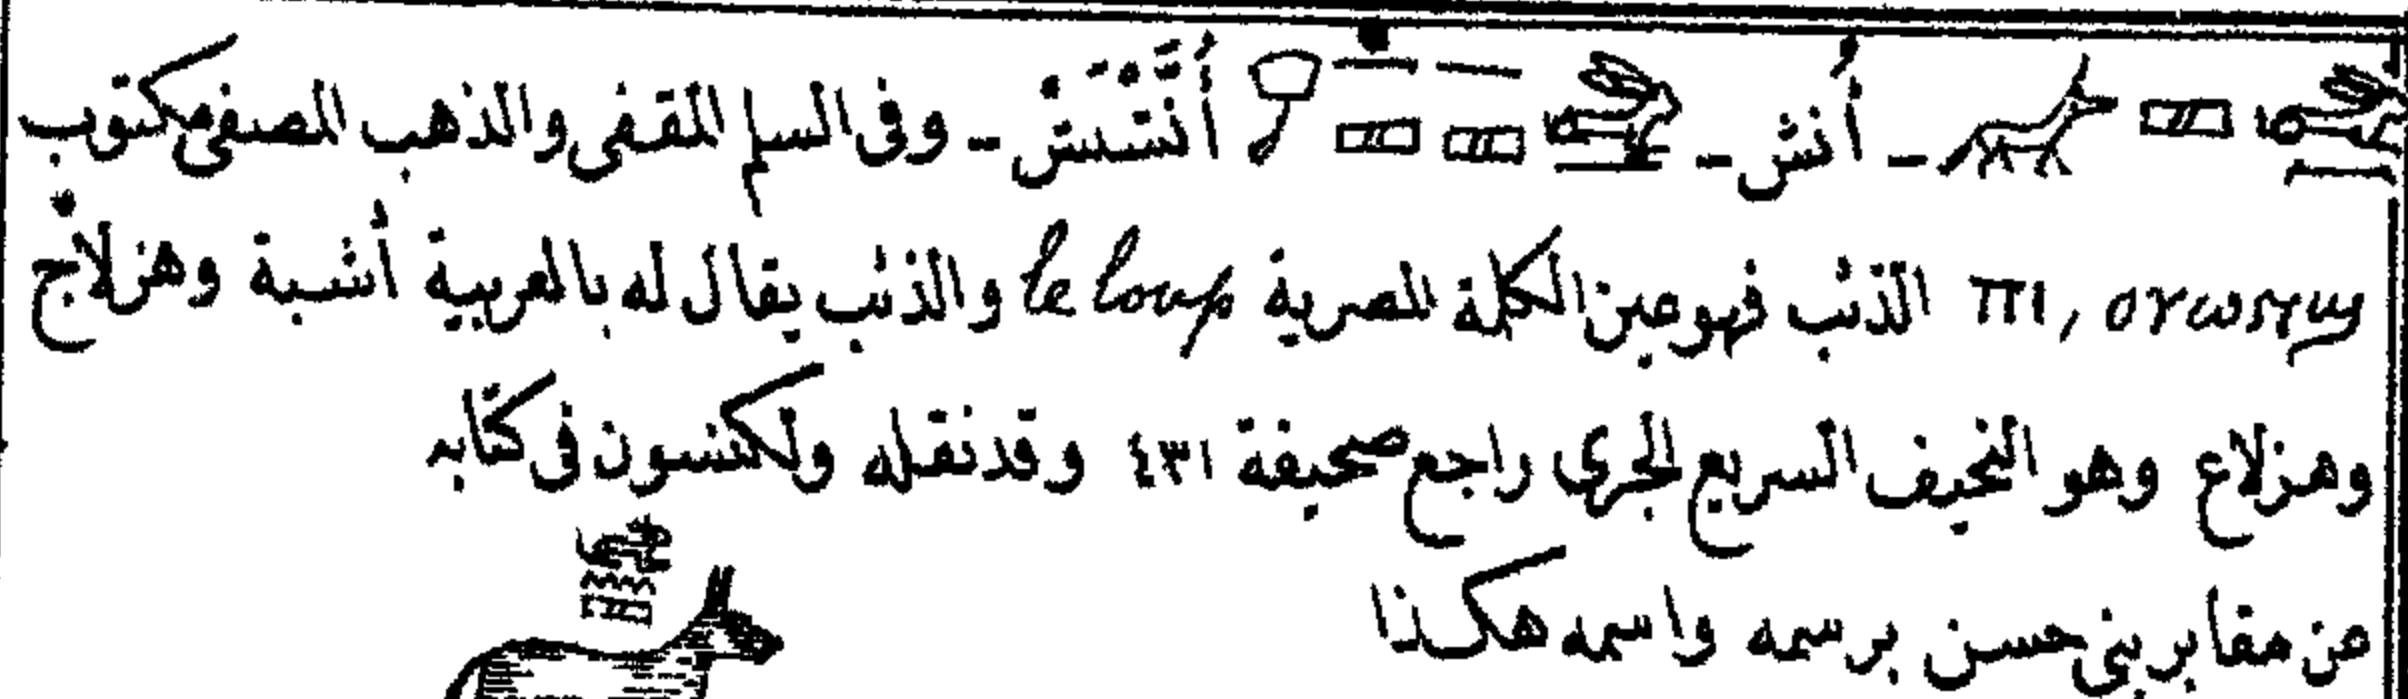 - أُنش - أَنَّشَش - وفى السلم المقفى والذهب المصفى مكتوب
ⲡⲓ, ⲟⲩⲱⲛϣ الذئب فهو عين الكلمة المصرية le loup والذئب يقال له بالعربية أشبة وهزلاج
وهزلاع وهو النحيف السريع الجرى راجع صحيفة ٤٣١ وقد نقله ولكنسون فى كتابه
من مقابر بنى حسن برسمه واسمه هكذا